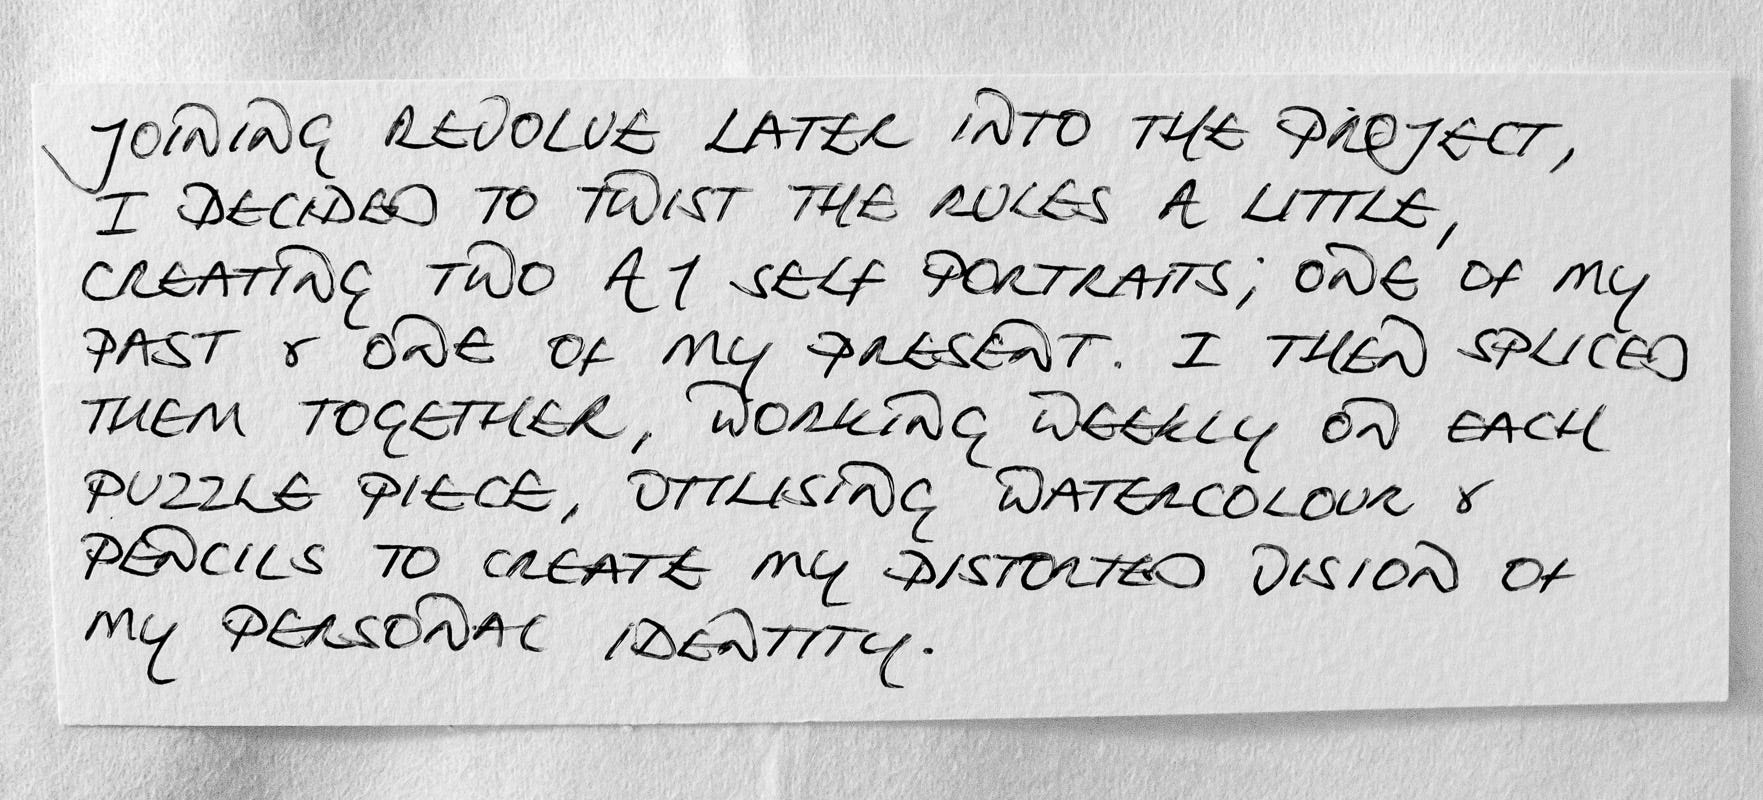 JOINING REVOLVE LATER INTO THE PROJECT,
I DECIDED TO TWIST THE RULES A LITTLE,
CREATING TWO A1 SELF PORTRAITS; ONE OF MY
PAST & ONE OF MY PRESENT. I THEN SPLICED
THEM TOGETHER, WORKING WEEKLY ON EACH
PUZZLE PIECE, UTILISING WATERCOLOUR &
PENCILS TO CREATE MY DISTORTED VISION OF
MY PERSONAL IDENTITY.